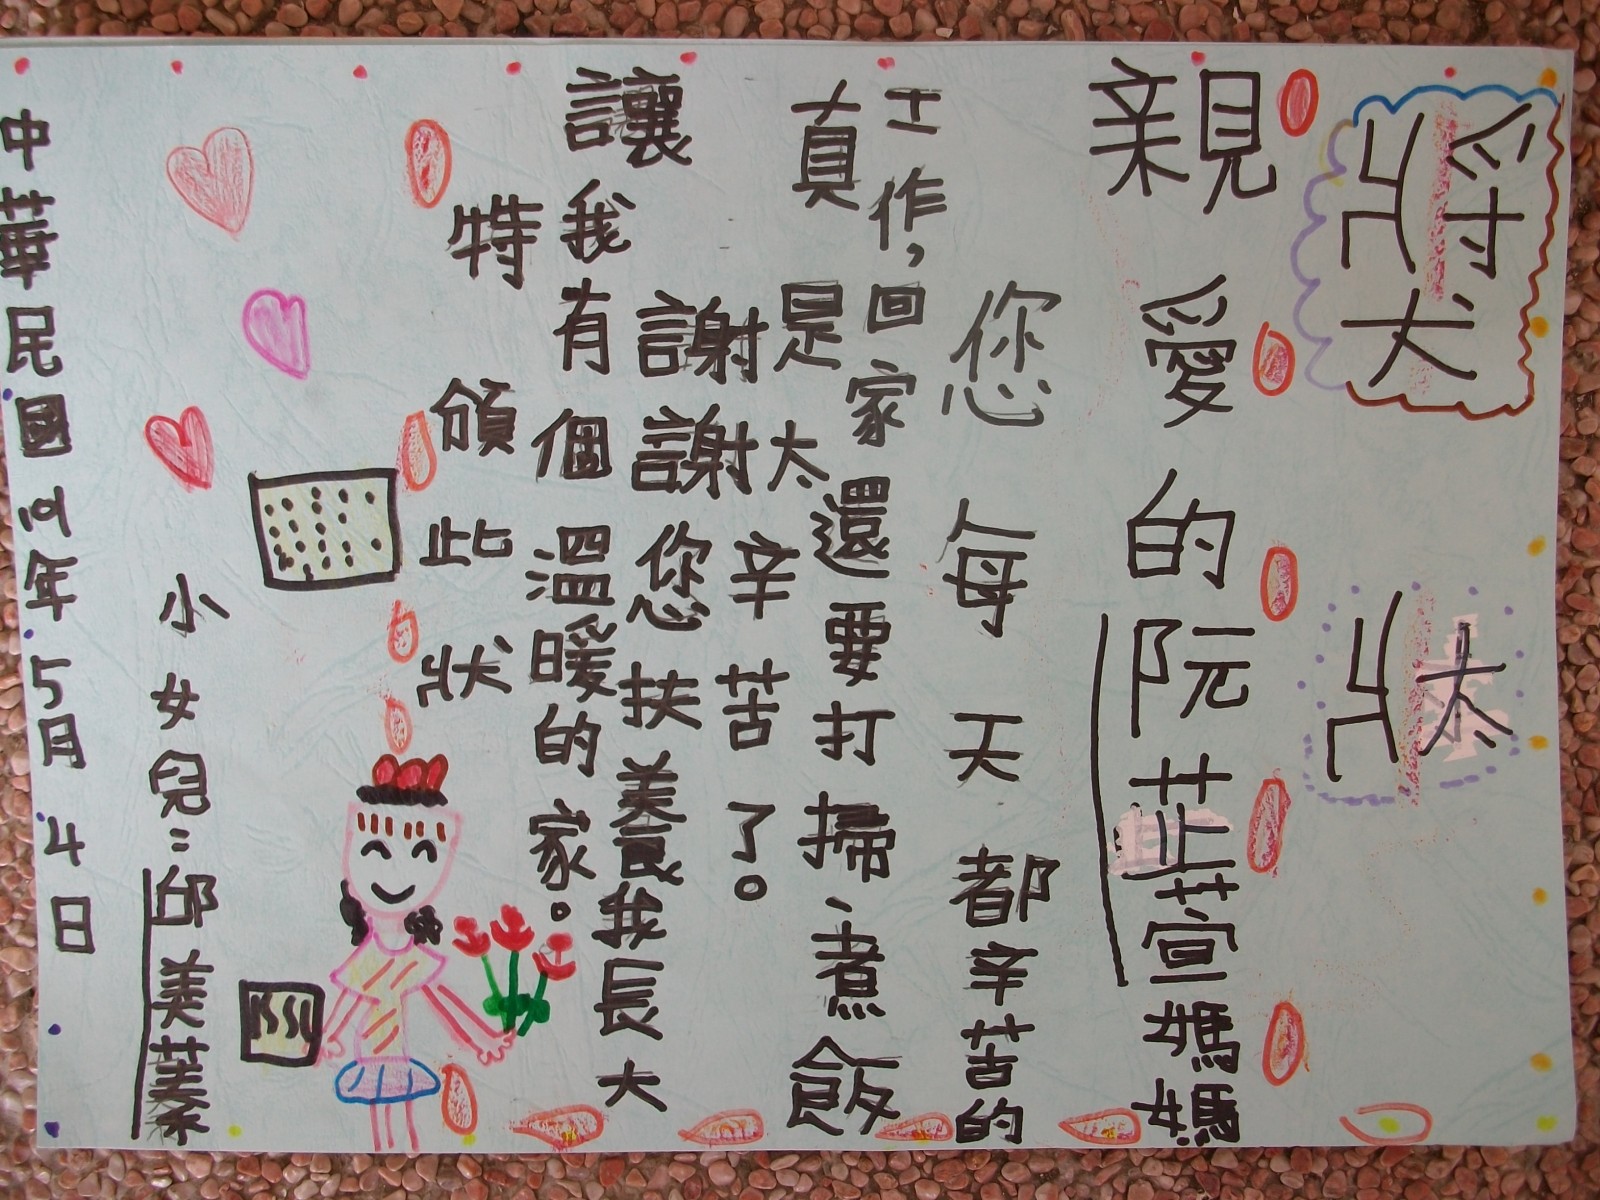 獎狀
親愛的阮芷萱媽媽
您每天都辛苦的
工作，回家還要打掃、煮飯
真是太辛苦了。
謝謝您扶養我長大
讓我有個溫暖的家。
特頒此狀
小女兒：邱美蓁
中華民國101年5月4日